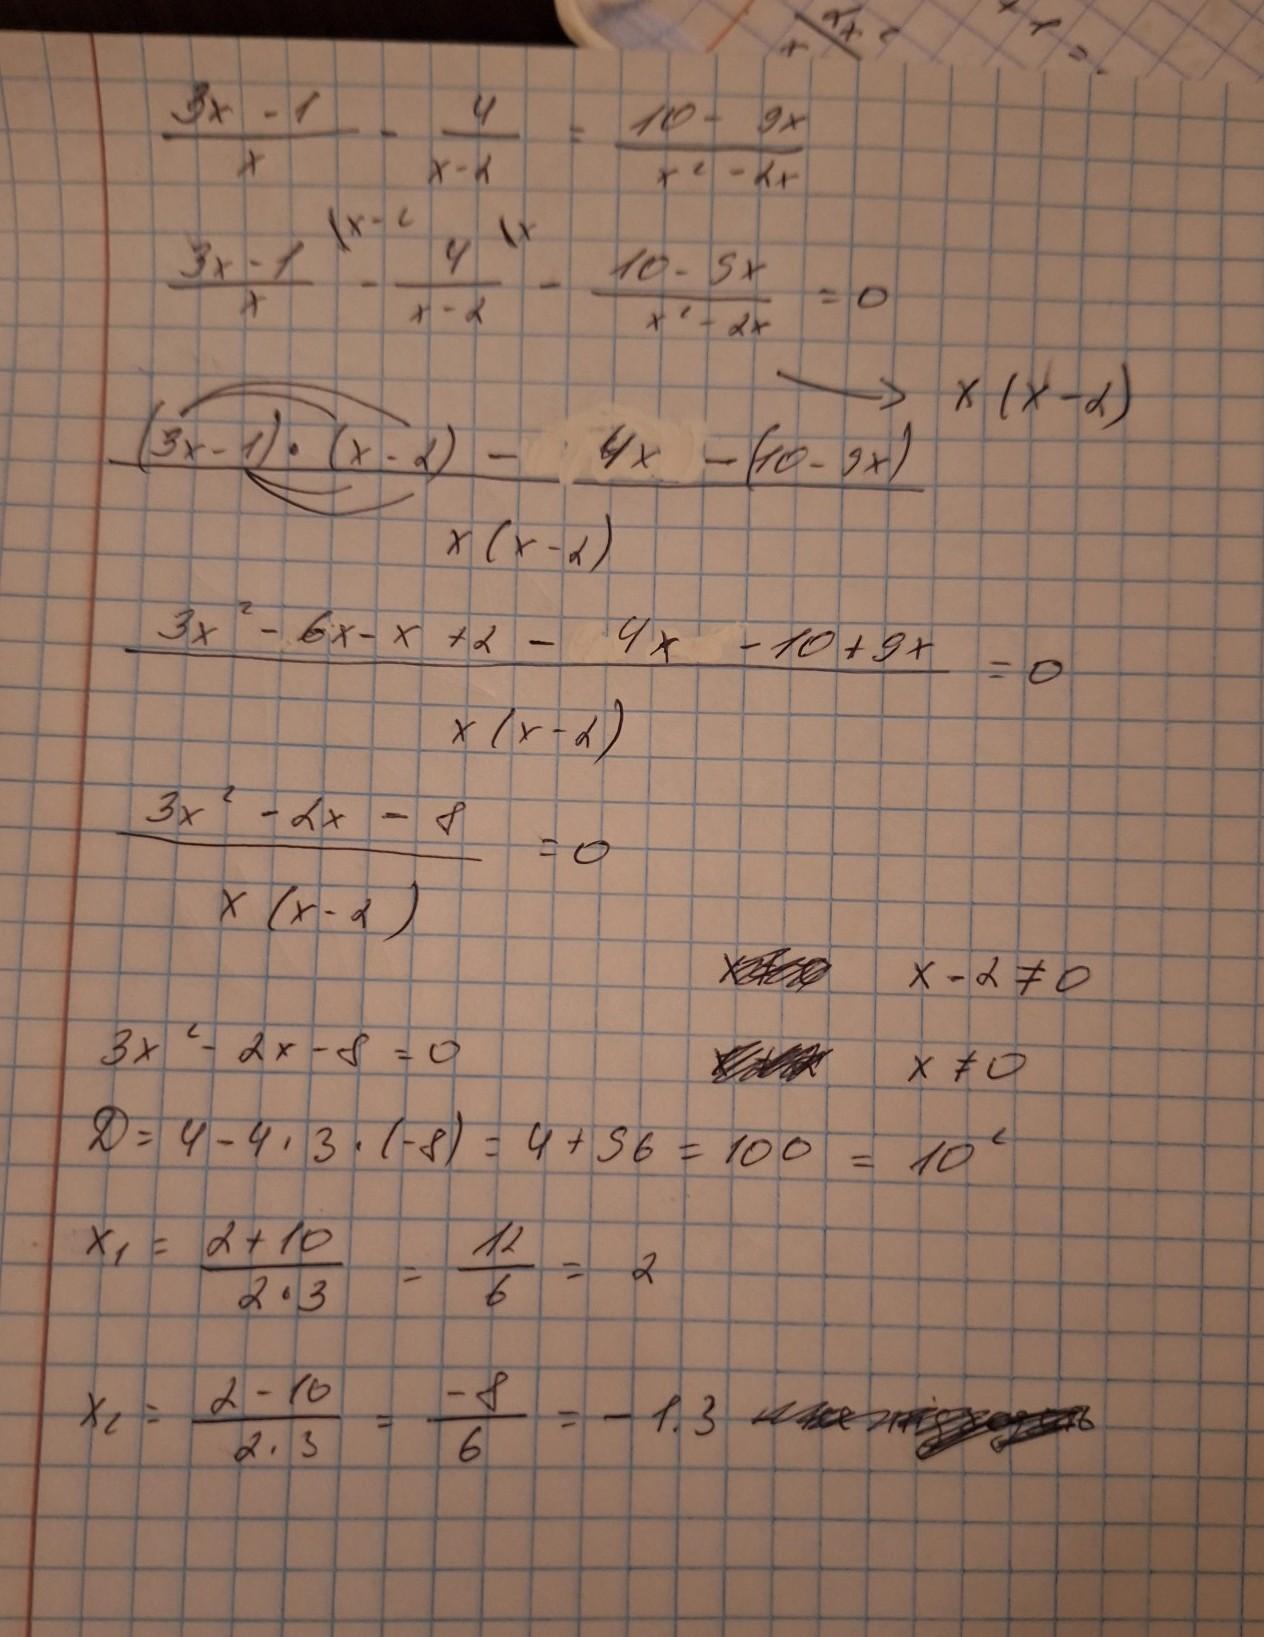 (3x - 1)/x - 4/(x-2) = (10 - 9x)/(x² - 2x)
(3x - 1)/x \x-2 - 4/(x-2) \x - (10 - 9x)/(x² - 2x) = 0
→ x(x-2)
((3x-1)·(x-2) - 4x - (10-9x))/(x(x-2))
(3x² - 6x - x + 2 - 4x - 10 + 9x)/(x(x-2)) = 0
(3x² - 2x - 8)/(x(x-2)) = 0
x - 2 ≠ 0
3x² - 2x - 8 = 0
x ≠ 0
D = 4 - 4·3·(-8) = 4 + 96 = 100 = 10²
x₁ = (2+10)/(2·3) = 12/6 = 2
x₂ = (2-10)/(2·3) = -8/6 = -1.3